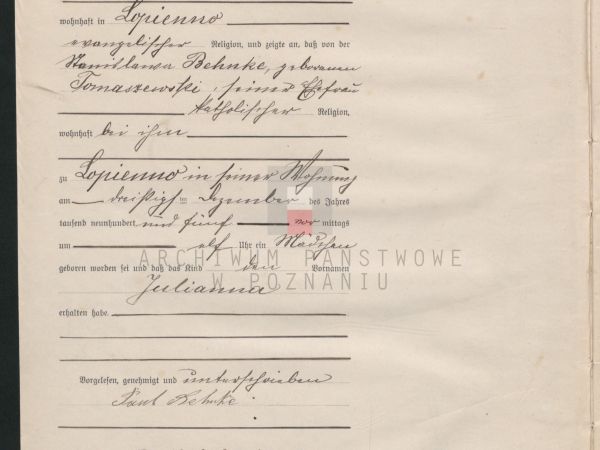 wohnhaft in Lopienno
evangelischer Religion, und zeigte an, daß von der
Stanislawa Behnke, geborenen
Tomaszewski, seiner Ehefrau
katholischer Religion,
wohnhaft bei ihm
zu Lopienno in seiner Wohnung
am dreißigsten Dezember des Jahres
tausend neunhundert und fünf vor mittags
um elf Uhr ein Mädchen
geboren worden sei und daß das Kind den Vornamen
Julianna
erhalten habe.
ARCHIWUM PAŃSTWOWE
W POZNANIU
Vorgelesen, genehmigt und unterschrieben
Paul Behnke